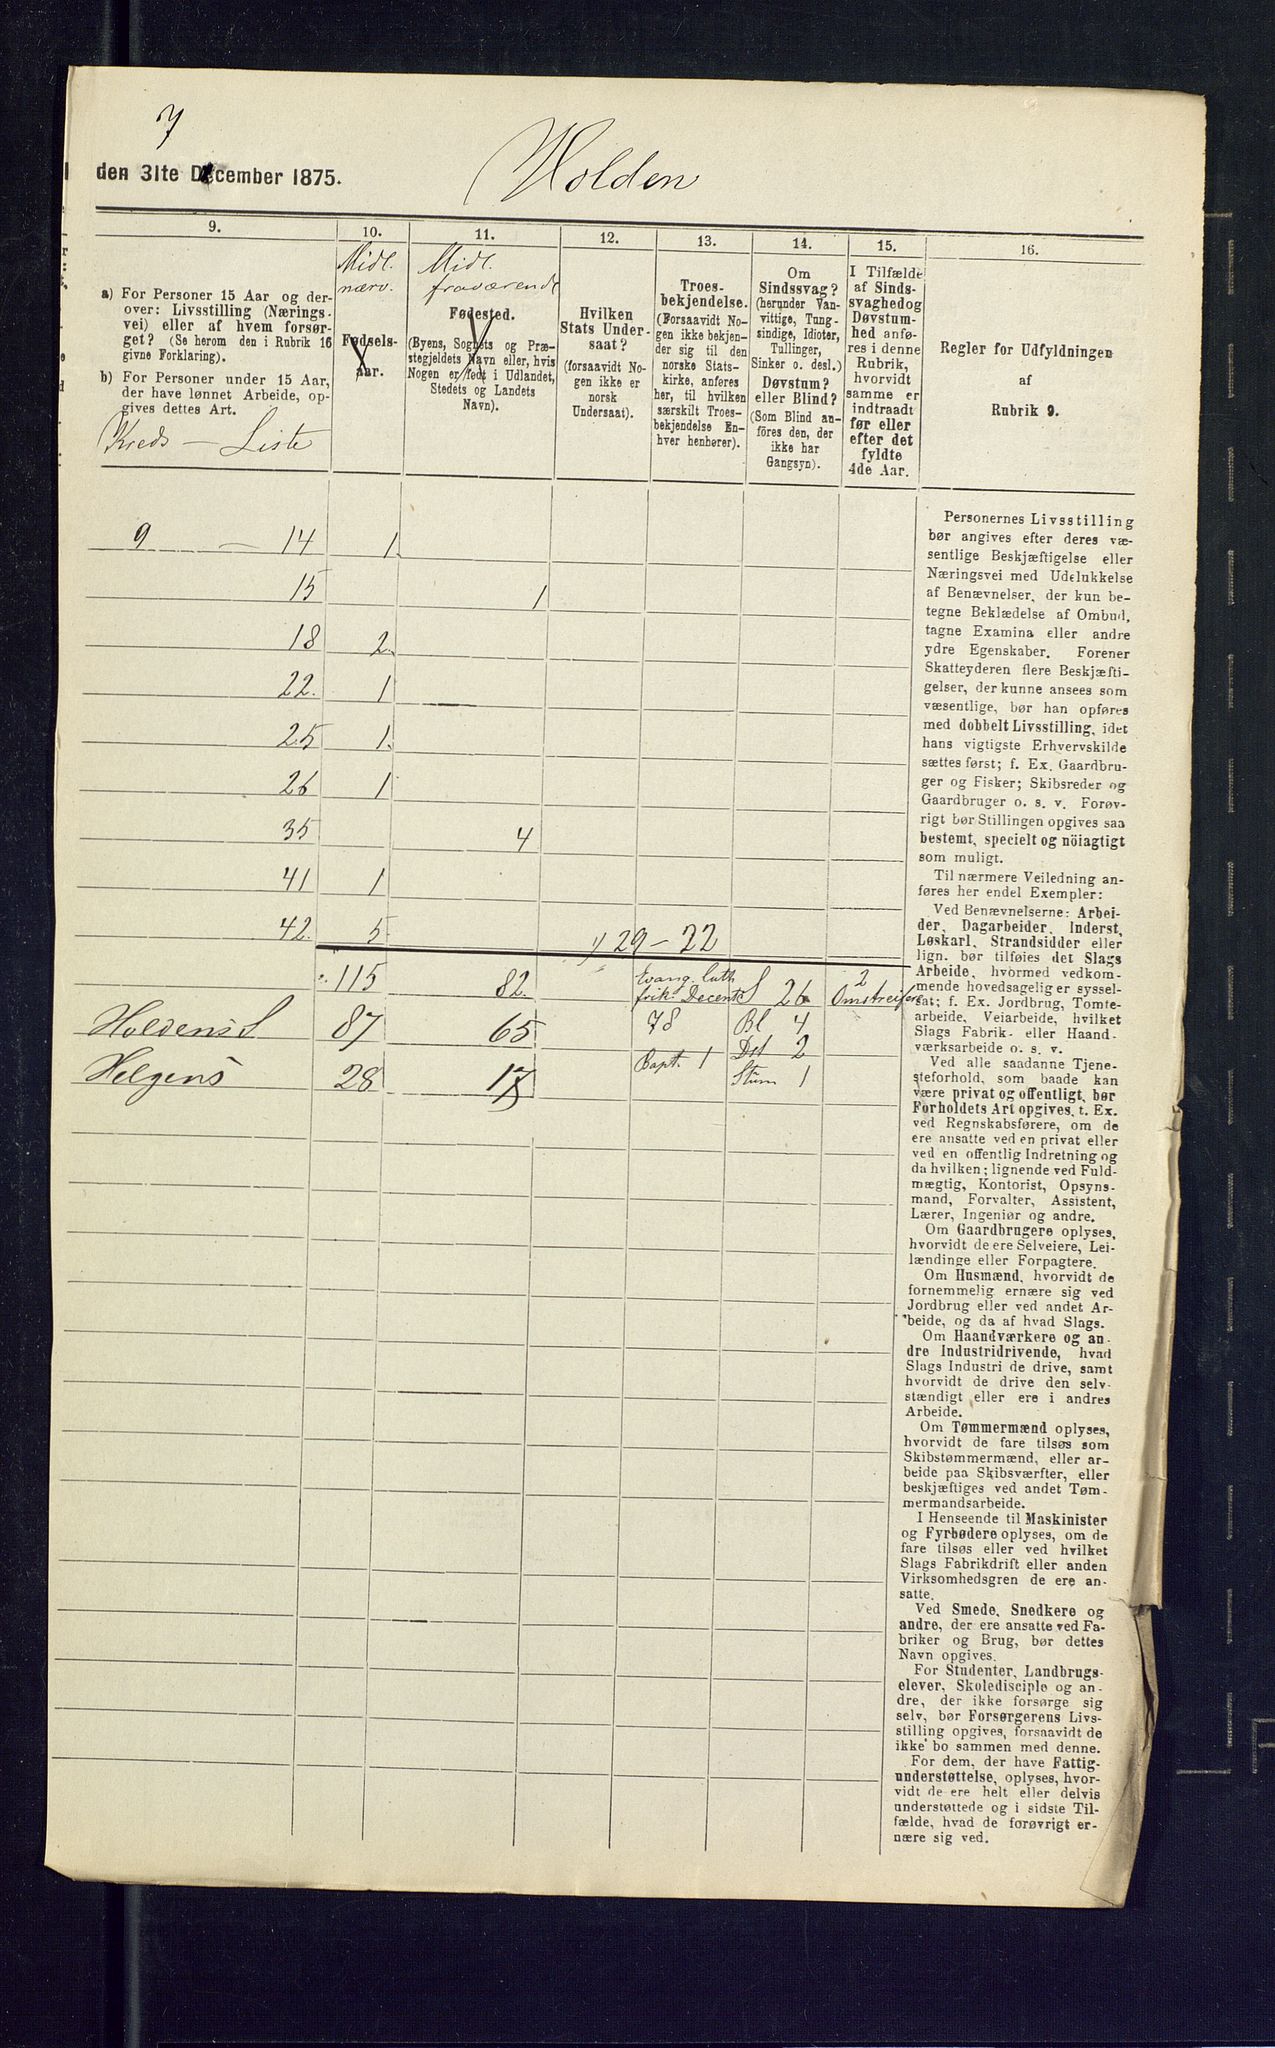 7
den 31te December 1875.
Holden
9.
10.
11.
12.
13.
14.
15.
16.
a) For Personer 15 Aar og derover: Livsstilling (Næringsvei) eller af hvem forsørget? (Se herom den i Rubrik 16 givne Forklaring).
b) For Personer under 15 Aar, der have lønnet Arbeide, opgives dettes Art.
Kreds — Liste
Midl. nærv.
Fødselsaar.
Midl. fraværende
Fødested.
(Byens, Sognets og Præstegjeldets Navn eller, hvis Nogen er født i Udlandet, Stedets og Landets Navn).
Hvilken Stats Undersaat?
(forsaavidt Nogen ikke er norsk Undersaat).
Troesbekjendelse.
(Forsaavidt Nogen ikke bekjender sig til den norske Statskirke, anføres her, til hvilken særskilt Troesbekjendelse Enhver henhører).
Om Sindssvag?
(herunder Vanvittige, Tungsindige, Idioter, Tullinger, Sinker o. desl.)
Døvstum? eller Blind?
(Som Blind anføres den, der ikke har Gangsyn).
I Tilfælde af Sindssvaghed og Døvstumhed anføres i denne Rubrik, hvorvidt samme er indtraadt før eller efter det fyldte 4de Aar.
Regler for Udfyldningen
af
Rubrik 9.
9 — 14 1.
15 1
18 2.
22. 1
25 1.
26 1
35 4
41 1
42. 5
29 – 22
115 82. Evang. luth. frik. Decent S 26 2 Omstreifer
Holdens S 87 65 78 Bl 4
Dst 2
Helgens 28 17 Bapt. 1 Stum 1
Personernes Livsstilling
bør angives efter deres væ-
sentlige Beskjæftigelse eller
Næringsvei med Udelukkelse
af Benævnelser, der kun be-
tegne Beklædelse af Ombud,
tagne Examina eller andre
ydre Egenskaber. Forener
Skatteyderen flere Beskjæfti-
gelser, der kunne ansees som
væsentlige, bør han opføres
med dobbelt Livsstilling, idet
hans vigtigste Erhvervskilde
sættes først; f. Ex. Gaardbru-
ger og Fisker; Skibsreder og
Gaardbruger o. s. v. Forøv-
rigt bør Stillingen opgives saa
bestemt, specielt og nöiagtigt
som muligt.
Til nærmere Veiledning an-
føres her endel Exempler:
Ved Benævnelserne: Arbei-
der, Dagarbeider, Inderst,
Løskarl, Strandsidder eller
lign. bør tilføies det Slags
Arbeide, hvormed vedkom-
mende hovedsagelig er syssel-
sat; f. Ex. Jordbrug, Tomte-
arbeide, Veiarbeide, hvilket
Slags Fabrik- eller Haand-
værksarbeide o. s. v.
Ved alle saadanne Tjene-
steforhold, som baade kan
være privat og offentligt, bør
Forholdets Art opgives, t. Ex.
ved Regnskabsførere, om de
ere ansatte ved en privat eller
ved en offentlig Indretning og
da hvilken; lignende ved Fuld-
mægtig, Kontorist, Opsyns-
mand, Forvalter, Assistent,
Lærer, Ingeniør og andre.
Om Gaardbrugere oplyses,
hvorvidt de ere Selveiere, Lei-
lændinge eller Forpagtere.
Om Husmænd, hvorvidt de
fornemmelig ernære sig ved
Jordbrug eller ved andet Ar-
beide, og da af hvad Slags.
Om Haandværkere og an-
dre Industridrivende, hvad
Slags Industri de drive, samt
hvorvidt de drive den selv-
stændigt eller ere i andres
Arbeide.
Om Tømmermænd oplyses,
hvorvidt de fare tilsøs som
Skibstømmermænd, eller ar-
beide paa Skibsværfter, eller
beskjæftiges ved andet Tøm-
mermandsarbeide.
I Henseende til Maskinister
og Fyrbødere oplyses, om de
fare tilsøs eller ved hvilket
Slags Fabrikdrift eller anden
Virksomhedsgren de ere an-
satte.
Ved Smede, Snedkere og
andre, der ere ansatte ved Fa-
briker og Brug, bør dettes
Navn opgives.
For Studenter, Landbrugs-
elever, Skoledisciple og an-
dre, der ikke forsørge sig
selv, bør Forsørgerens Livs-
stilling opgives, forsaavidt de
ikke bo sammen med denne.
For dem, der have Fattig-
understøttelse, oplyses, hvor-
vidt de ere helt eller delvis
understøttede og i sidste Til-
fælde, hvad de forøvrigt er-
nære sig ved.